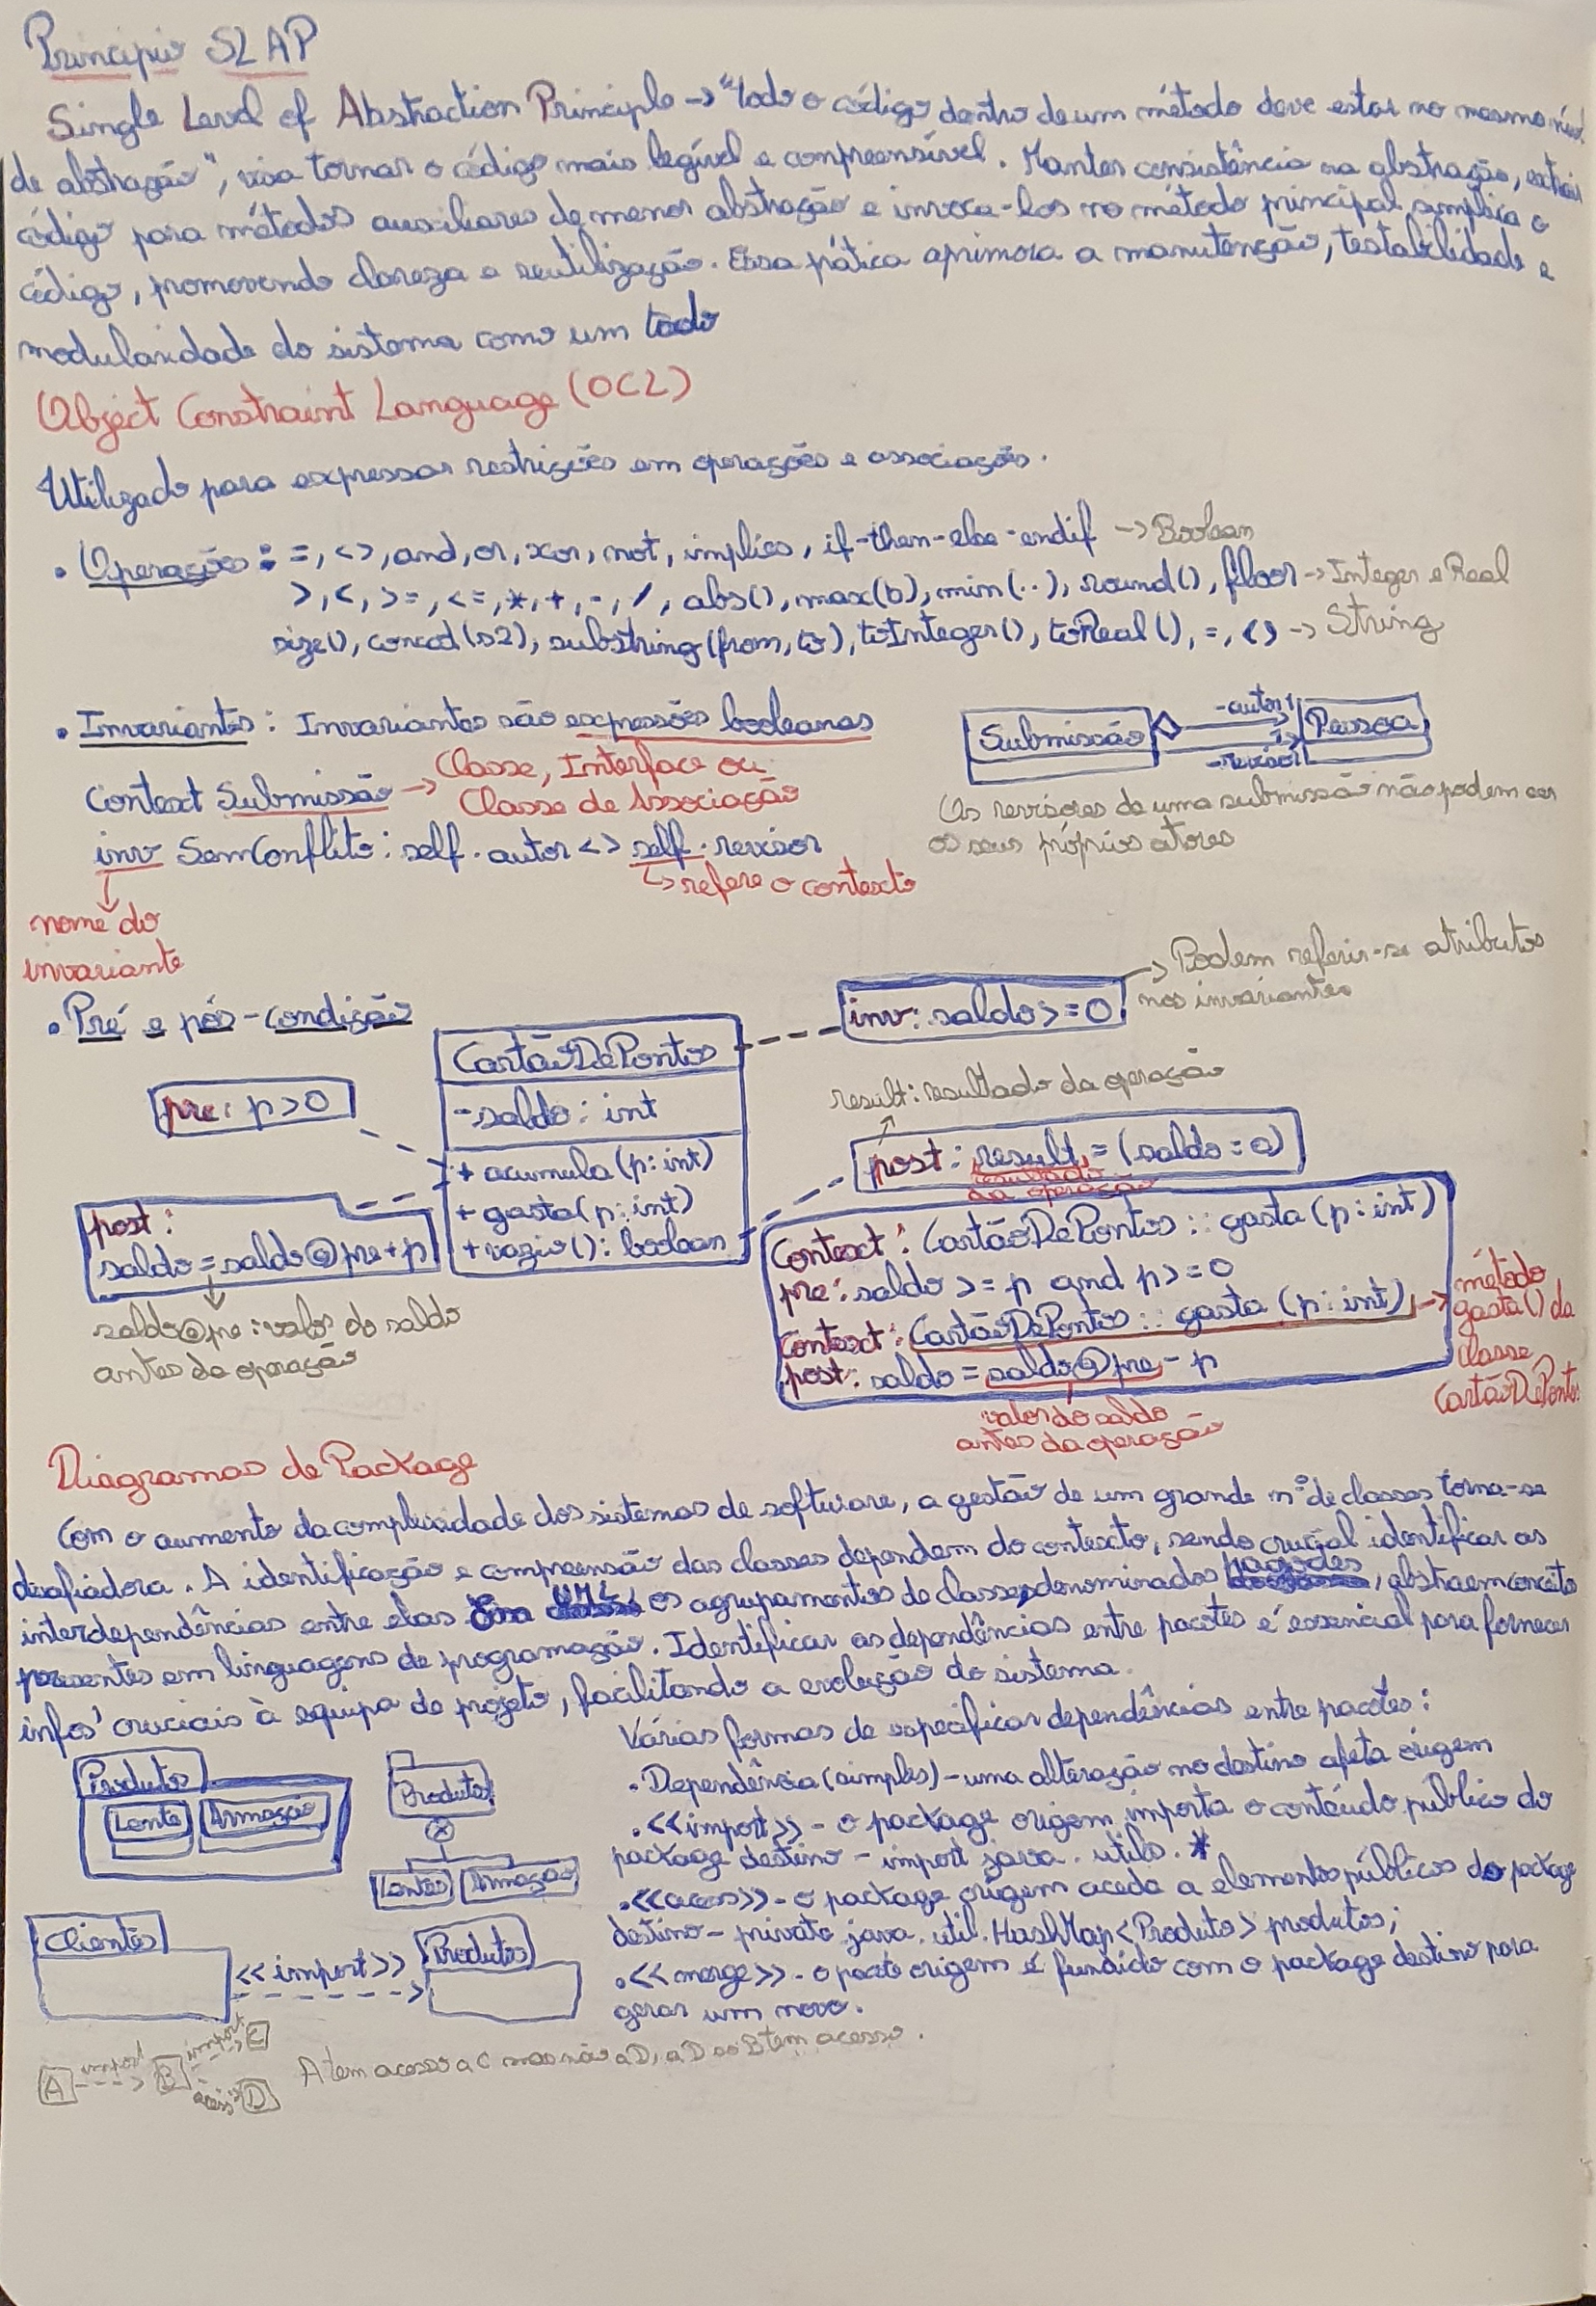 Princípio SLAP
Single Level of Abstraction Principle -> "Todo o código dentro de um método deve estar no mesmo nível
de abstração", visa tornar o código mais legível e compreensível. Manter consistência na abstração, extrair
código para métodos auxiliares de menor abstração e invoca-los no método principal simplica o
código, promovendo clareza e reutilização. Essa prática aprimora a manutenção, testabilidade e
modularidade do sistema como um todo
Object Constraint Language (OCL)
Utilizado para expressar restrições em operações e associações.
• Operações: =, <>, and, or, xor, not, implies, if-then-else-endif -> Boolean
>, <, >=, <=, *, +, -, /, abs(), max(b), min(..), round(), floor -> Integer e Real
size(), concat(s2), substring(from, to), toInteger(), toReal(), =, <> -> String
• Invariantes: Invariantes são expressões booleanas
Context Submissão -> Classe, Interface ou
Classe de Associação
inv SemConflito: self.autor <> self.revisor
↳ refere o contexto
nome do
invariante
Submissão
-autor 1
-revisor 1
Pessoa
Os revisores de uma submissão não podem ser
os seus próprios atores
• Pré e pós-condição
pre: p>0
CartãoDePontos
-saldo: int
+ acumula(p:int)
+ gasta(p:int)
+ vazio(): boolean
inv: saldo >= 0
-> Podem referir-se atributos
nos invariantes
result: resultado da operação
post: result = (saldo = 0)
resultado
da operação
post:
saldo = saldo@pre+p
saldo@pre: valor do saldo
antes da operação
Context: CartãoDePontos :: gasta (p:int)
pre: saldo >= p and p >= 0
Context: CartãoDePontos :: gasta (p:int)
post: saldo = saldo@pre - p
-> método
gasta() da
classe
CartãoDePontos
valor do saldo
antes da operação
Diagramas de Package
Com o aumento da complexidade dos sistemas de software, a gestão de um grande nº de classes torna-se
desafiadora. A identificação e compreensão das classes dependem do contexto, sendo crucial identificar as
interdependências entre elas Em UML, os agrupamentos de classes, denominados pacotes, abstraem conceitos
presentes em linguagens de programação. Identificar as dependências entre pacotes é essencial para fornecer
infos' cruciais à equipa de projeto, facilitando a evolução do sistema.
Várias formas de especificar dependências entre pacotes:
• Dependência (simples) - uma alteração no destino afeta origem
• <<import>> - o package origem importa o contéudo público do
package destino - import java.utils.*
• <<acess>> - o package origem acede a elementos públicos do package
destino - private java.util.HashMap<Produto> produtos;
• <<merge>> - o pacote origem é fundido com o package destino para
gerar um novo.
Produtos
Lente
Armação
Produtos
Lentes
Armação
Clientes
<<import>>
Produtos
A import B import C
acess D
A tem acesso a C mas não a D, a D só B tem acesso.